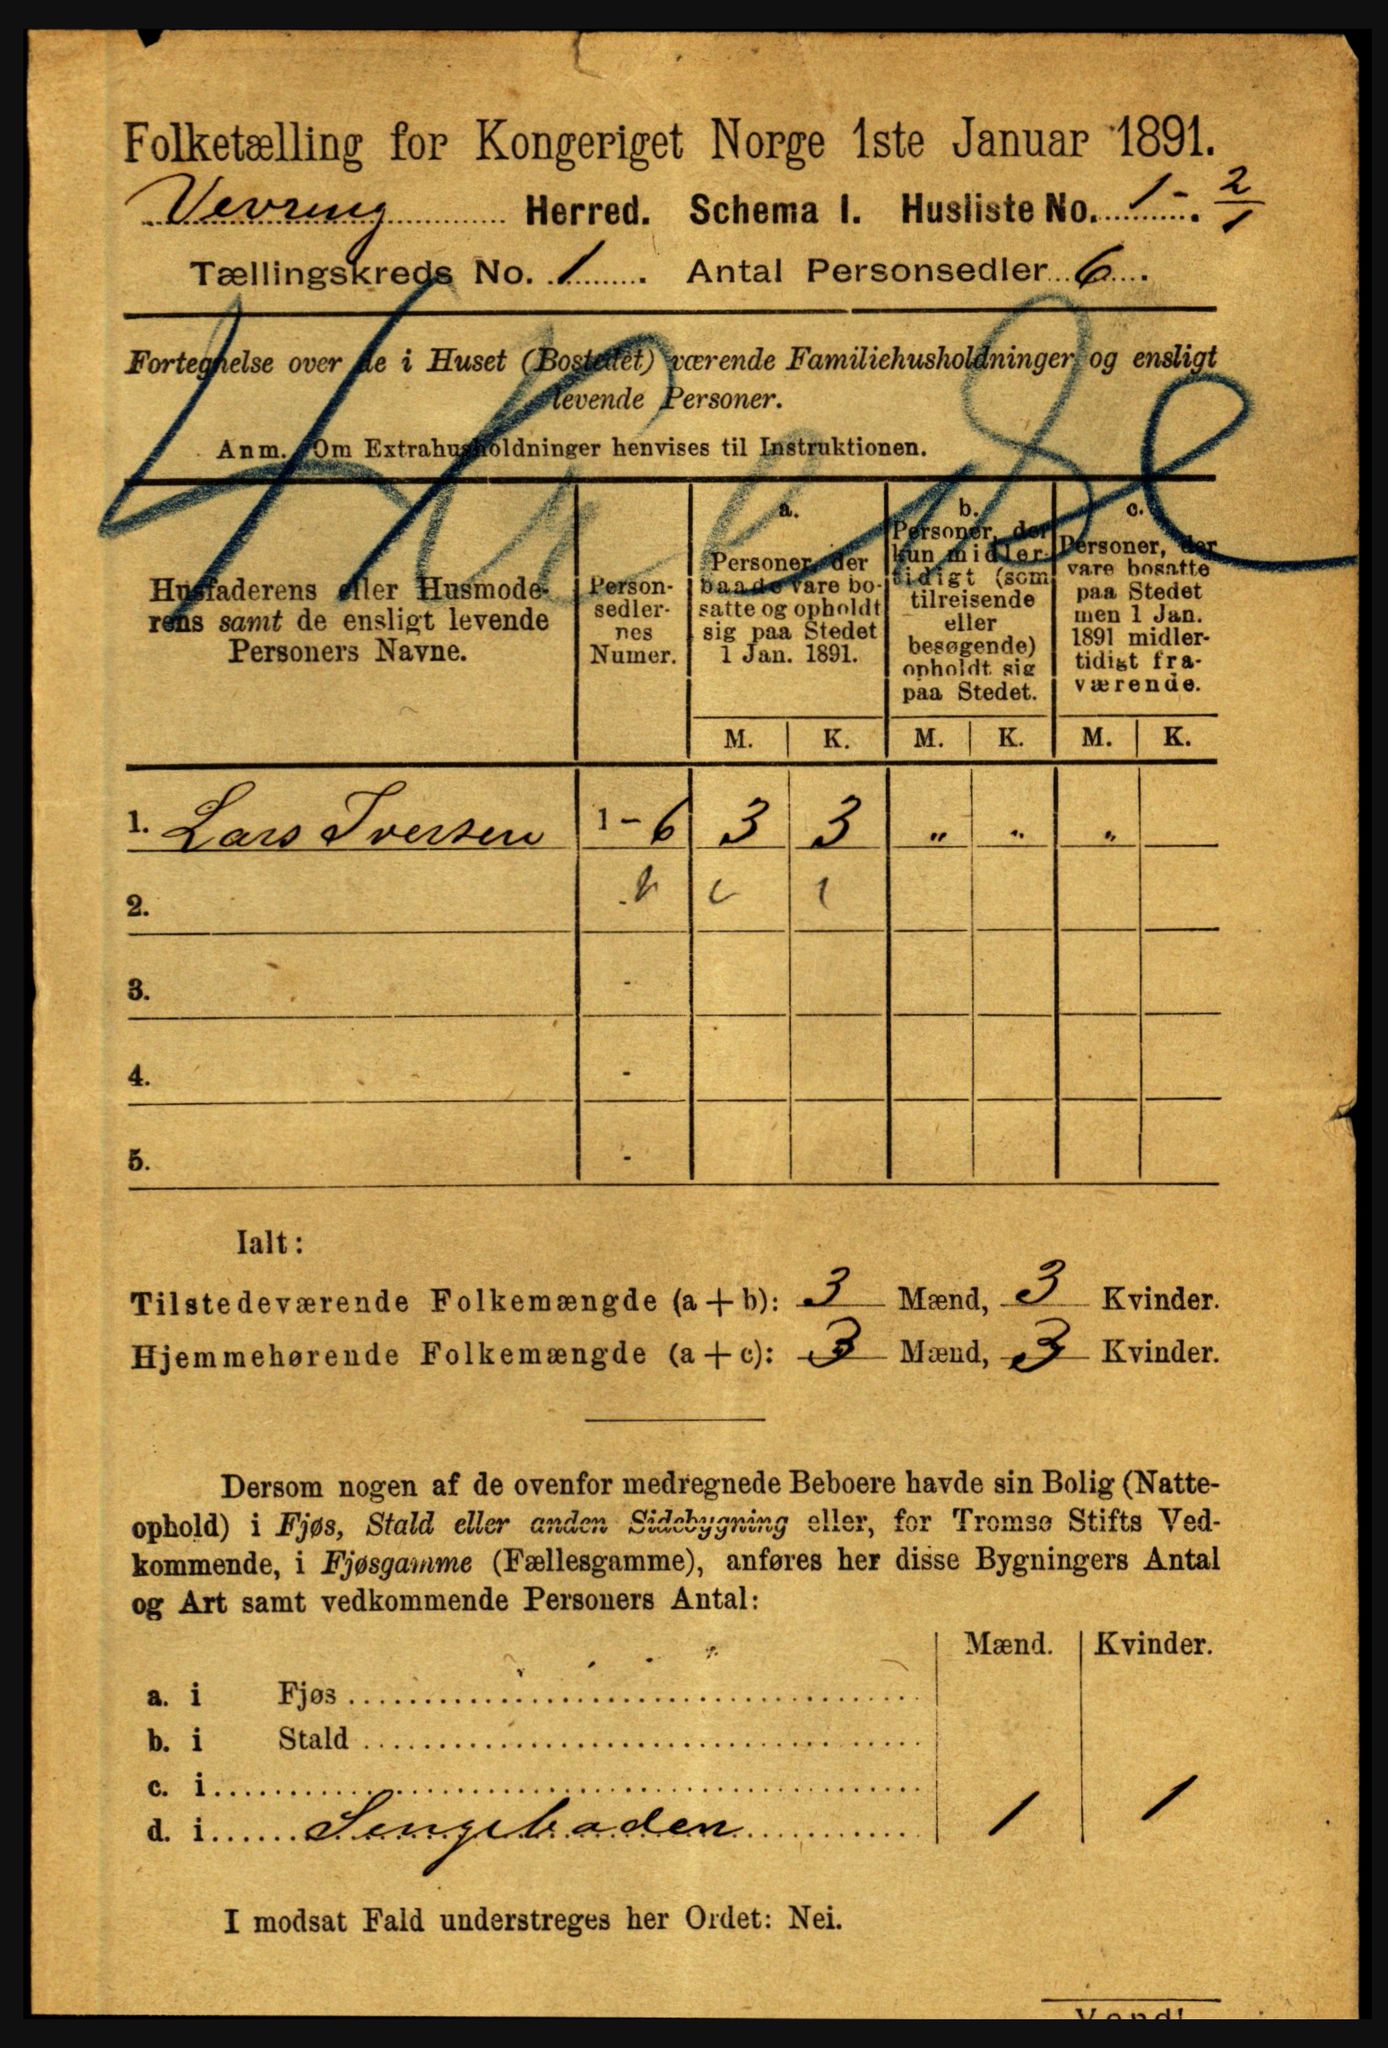 Folketælling for Kongeriget Norge 1ste Januar 1891.
Vevring Herred. Schema I. Husliste No. 1 - 2/1
Tællingskreds No. 1. Antal Personsedler 6.
Fortegnelse over de i Huset (Bostedet) værende Familiehusholdninger og ensligt
levende Personer.
Anm. Om Extrahusholdninger henvises til Instruktionen.
Husfaderens eller Husmode-
rens samt de ensligt levende
Personers Navne.
Person-
sedler-
nes
Numer.
a.
Personer, der
baade vare bo-
satte og opholdt
sig paa Stedet
1 Jan. 1891.
b.
Personer, der
kun midler-
tidigt (som
tilreisende
eller
besøgende)
opholdt sig
paa Stedet.
c.
Personer, der
vare bosatte
paa Stedet
men 1 Jan.
1891 midler-
tidigt fra-
værende.
M. K. M. K. M. K.
1. Lars Iversen 1 - 6 3 3 " " "
2.
3. -
4. -
5. -
Ialt:
Tilstedeværende Folkemængde (a + b): 3 Mænd, 3 Kvinder.
Hjemmehørende Folkemængde (a + c): 3 Mænd, 3 Kvinder.
Dersom nogen af de ovenfor medregnede Beboere havde sin Bolig (Natte-
ophold) i Fjøs, Stald eller anden Sidebygning eller, for Tromsø Stifts Ved-
kommende, i Fjøsgamme (Fællesgamme), anføres her disse Bygningers Antal
og Art samt vedkommende Personers Antal:
Mænd. Kvinder.
a. i Fjøs
b. i Stald
c. i
d. i Sengeboden 1 1
I modsat Fald understreges her Ordet: Nei.
Vend!